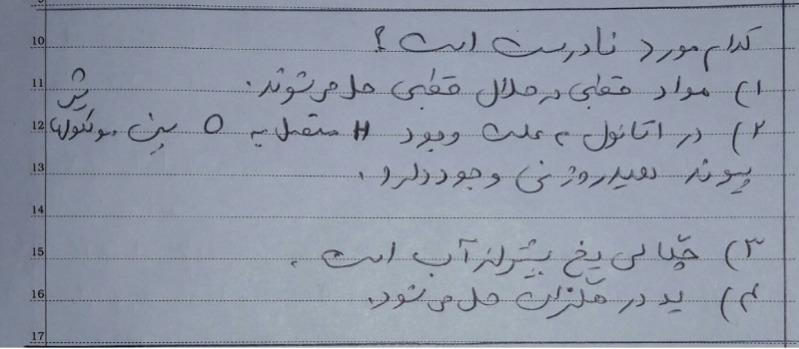 10 کدام مورد نادرست است؟
11 ۱) مواد قطبی در حلال قطبی حل می‌شوند.
12 ۲) در اتانول به علت وجود H متصل به O بین مولکولهایش
13 پیوند هیدروژنی وجود دارد.
14
15 ۳) چگالی یخ بیشتر از آب است.
16 ۴) ید در هگزان حل می‌شود.
17